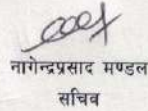 नागेन्द्रप्रसाद मण्डल
सचिव